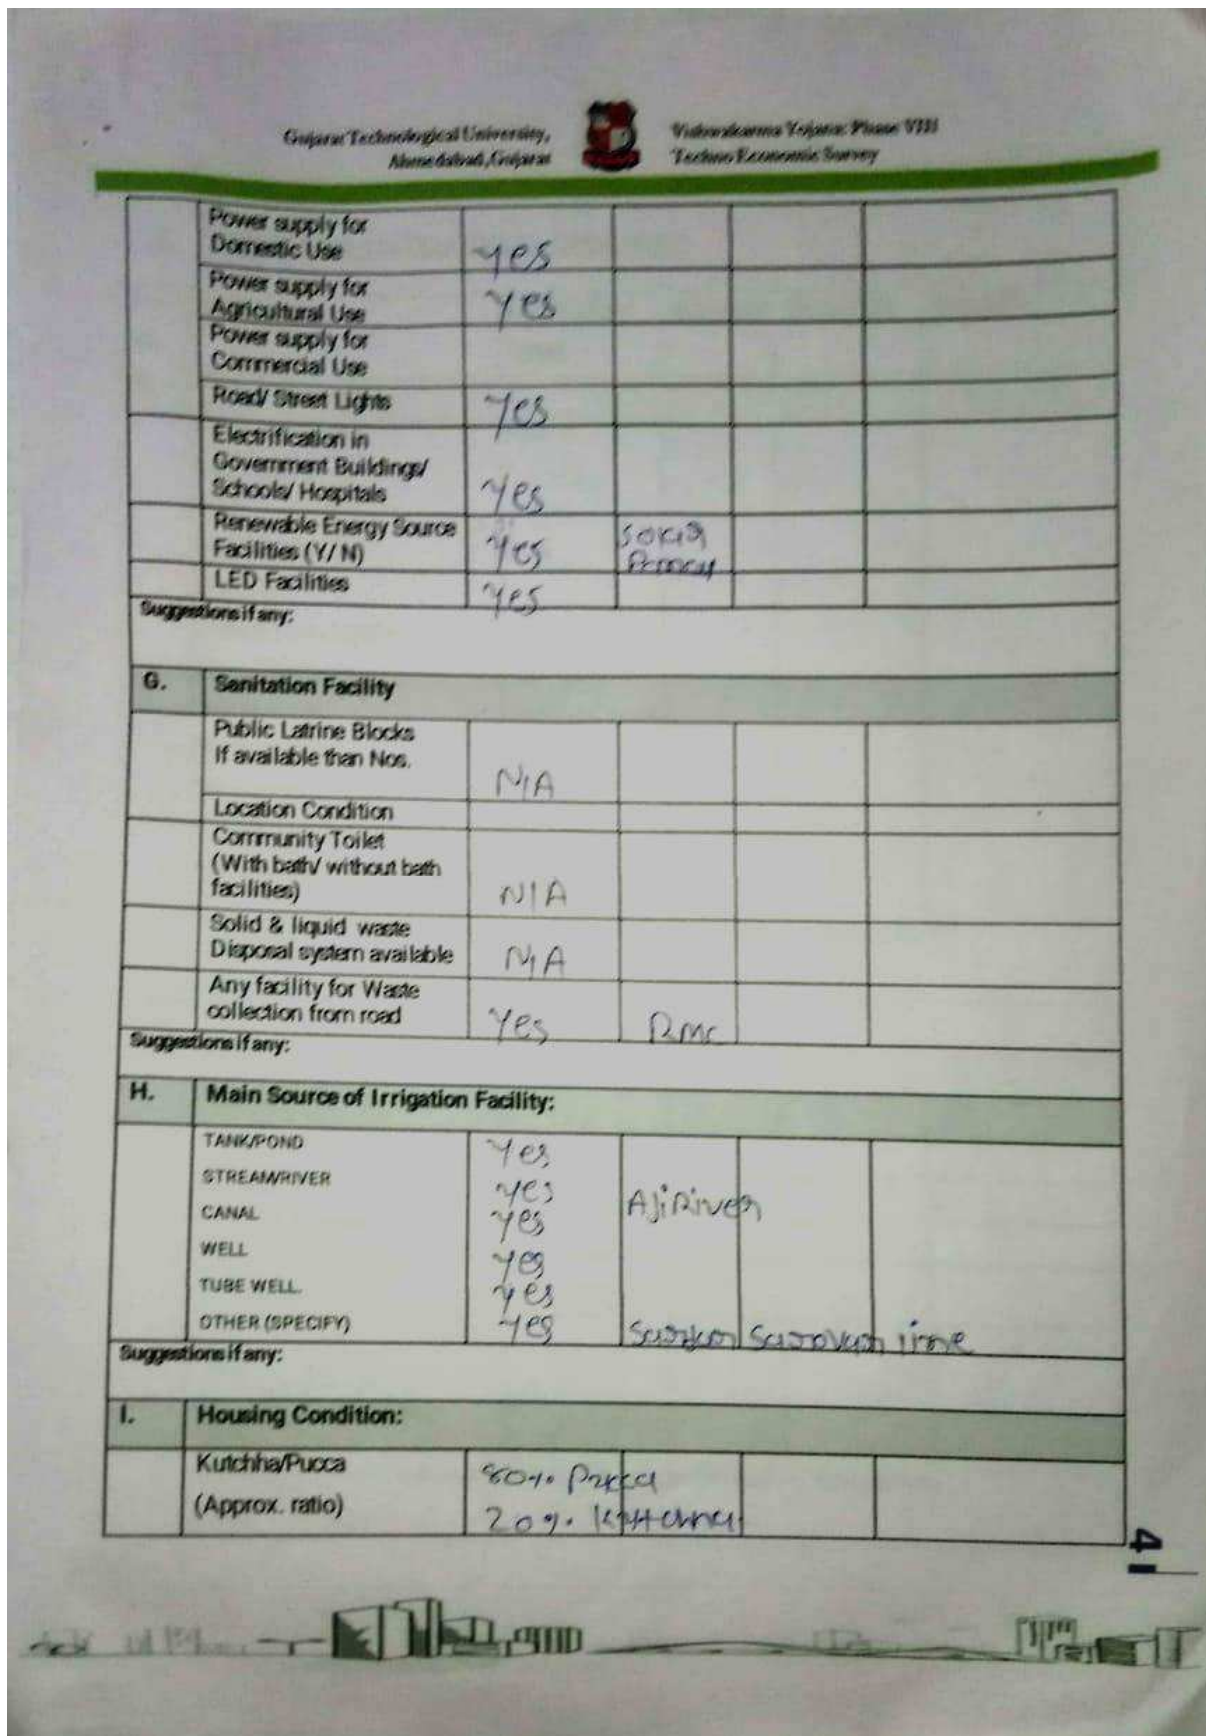 Gujarat Technological University,
Ahmedabad, Gujarat
Vishwakarma Yojana: Phase VIII
Techno Economic Survey
Power supply for
Domestic Use yes
Power supply for
Agricultural Use yes
Power supply for
Commercial Use
Road/ Street Lights yes
Electrification in
Government Buildings/
Schools/ Hospitals yes
Renewable Energy Source
Facilities (Y/ N) yes
LED Facilities yes
Suggestions if any:
G. Sanitation Facility
Public Latrine Blocks
If available than Nos.
N/A
Location Condition
Community Toilet
(With bath/ without bath
facilities) N/A
Solid & liquid waste
Disposal system available N/A
Any facility for Waste
collection from road yes RMC
Suggestions if any:
H. Main Source of Irrigation Facility:
TANK/POND yes
STREAM/RIVER yes Aji River
CANAL yes
WELL yes
TUBE WELL. yes
OTHER (SPECIFY) yes
Suggestions if any:
I. Housing Condition:
Kutchha/Pucca 80%
(Approx. ratio) 20%
4